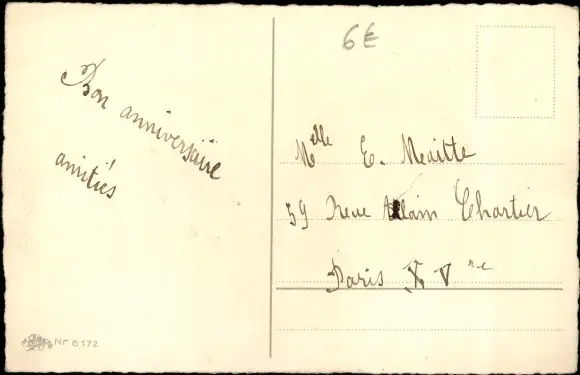 6€
Bon anniversaire
amitiés
Melle E. Meaitte
59 Rue Alain Chartier
Paris XV me
Nr 6172